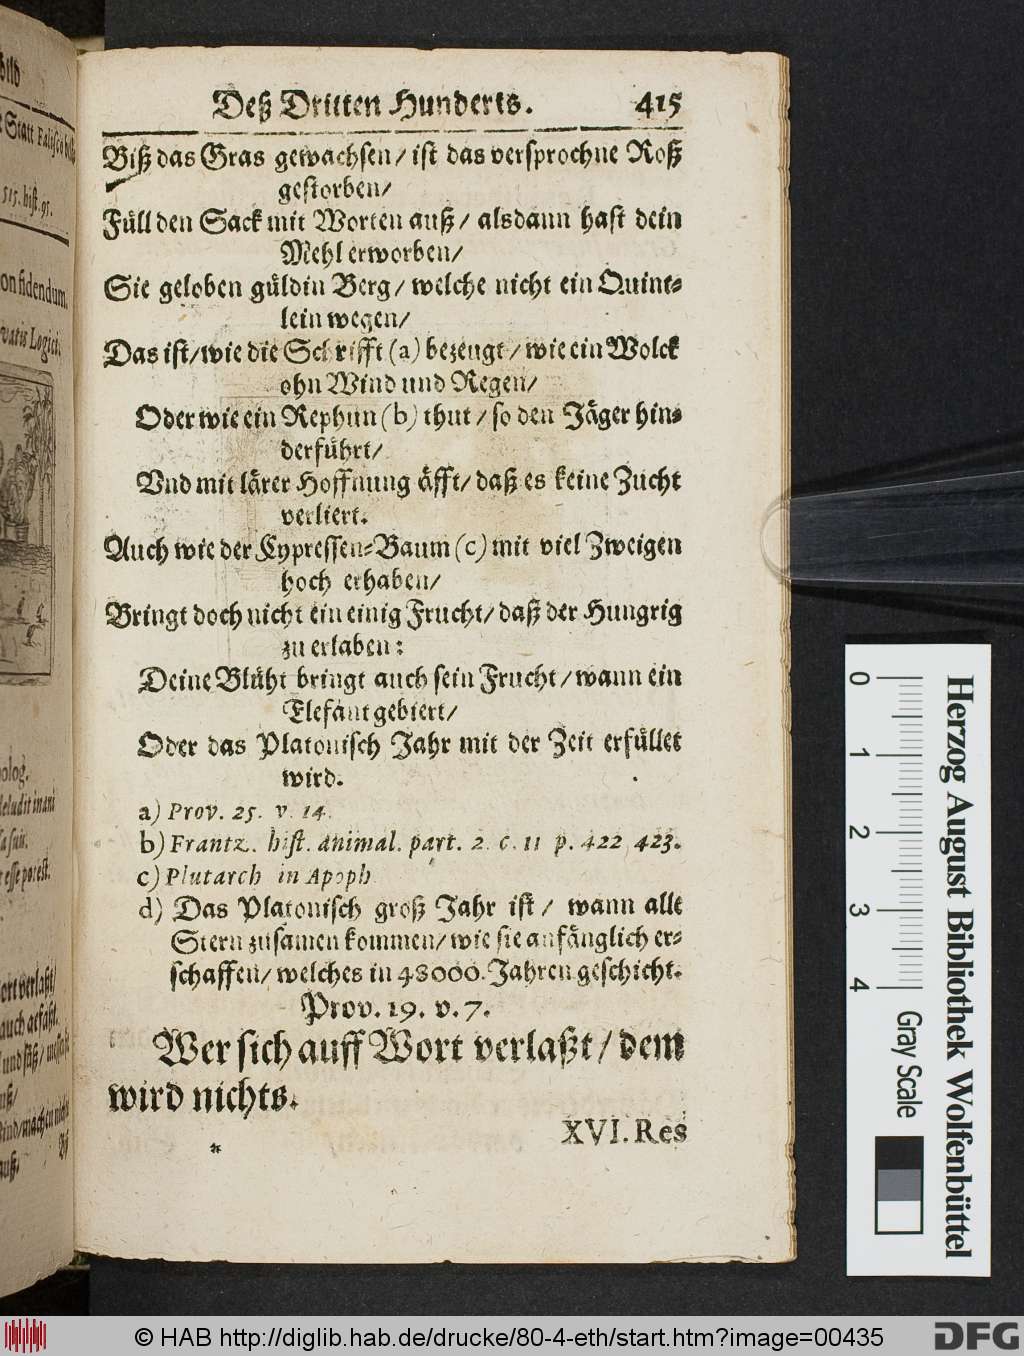 Deß Dritten Hunderts. 415
Biß das Gras gewachsen/ ist das versprochne Roß
gestorben/
Füll den Sack mit Worten auß/ alsdann hast dein
Mehl erworben/
Sie geloben güldin Berg/ welche nicht ein Quint-
lein wegen/
Das ist/ wie die Schrifft (a) bezeugt/ wie ein Wolck
ohn Wind und Regen/
Oder wie ein Rephun (b) thut/ so den Jäger hin-
derführt/
Und mit lärer Hoffnung äfft/ daß es keine Zucht
verliert.
Auch wie der Cypressen-Baum (c) mit viel Zweigen
hoch erhaben/
Bringt doch nicht ein einig Frucht/ daß der Hungrig
zu erlaben:
Deine Blüht bringt auch sein Frucht/ wann ein
Elefant gebiert/
Oder das Platonisch Jahr mit der Zeit erfüllet
wird.
a) Prov. 25. v. 14.
b) Frantz. hist. animal. part. 2. c. 11 p. 422 423.
c) Plutarch in Apoph
d) Das Platonisch groß Jahr ist/ wann alle
Stern zusamen kommen/ wie sie anfänglich er-
schaffen/ welches in 48000. Jahren geschicht.
Prov. 19. v. 7.
Wer sich auff Wort verlaßt/ dem
wird nichts.
* XVI. Res
bild
Statt Falisco
515. hist. 95.
on fidendum.
vatis Logici.
olog.
deludit inani
esse potest.
ort verlaßt/
auch
und süß/
Biß
auß.
0 1 2 3 4
Gray Scale
Herzog August Bibliothek Wolfenbüttel
© HAB http://diglib.hab.de/drucke/80-4-eth/start.htm?image=00435
DFG